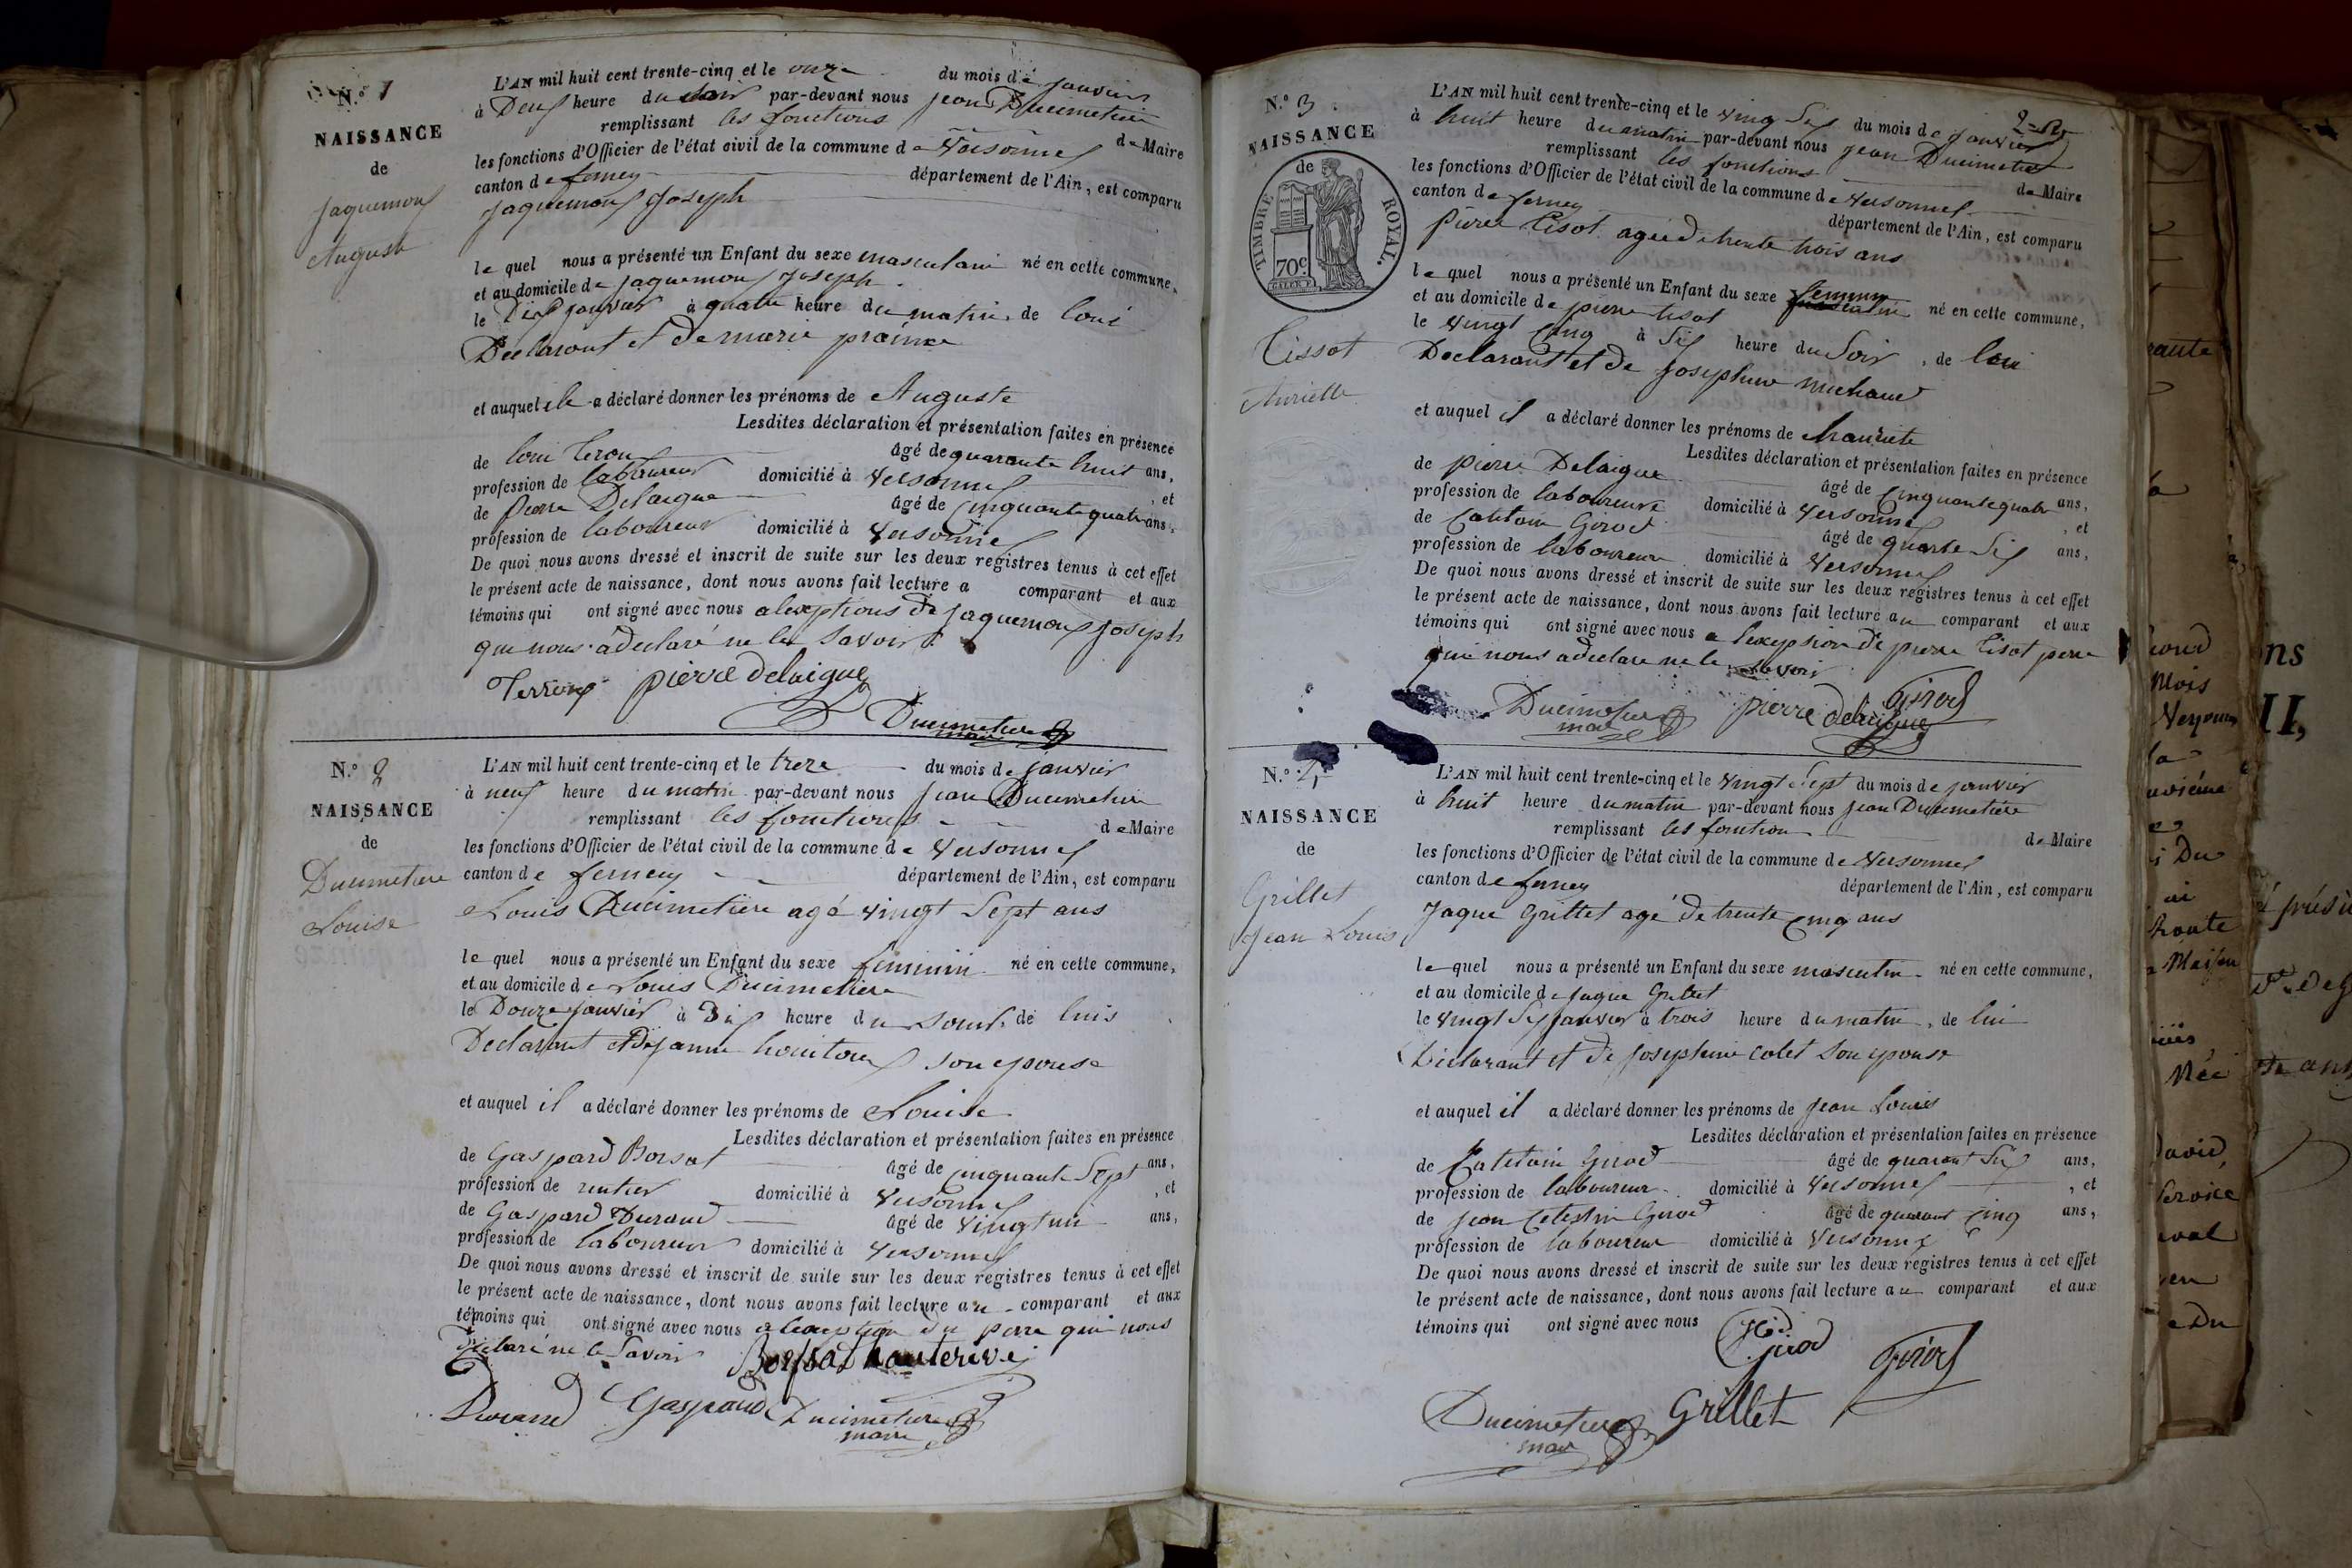 N.º 1
NAISSANCE
de
Jaquemoux
Auguste
L'AN mil huit cent trente-cinq et le onze du mois de janvier
à Deux heure du soir par-devant nous jean Ducimetiere
remplissant les fonctions de Maire
les fonctions d'Officier de l'état civil de la commune de Versonnex
canton de ferney département de l'Ain, est comparu
Jaquemoux Joseph
le quel nous a présenté un Enfant du sexe masculain né en cette commune,
et au domicile de jaquemoux Joseph
le Dix janvier à quatre heure du matin, de loui
Declarant et de marie
et auquel il a déclaré donner les prénoms de Auguste
Lesdites déclaration et présentation faites en présence
de loui Teroux âgé de quarante huit ans,
profession de laboureur domicilié à Versonnex, et
de Pierre Delaigue âgé de cinquante quatre ans,
profession de laboureur domicilié à Versonnex
De quoi nous avons dressé et inscrit de suite sur les deux registres tenus à cet effet
le présent acte de naissance, dont nous avons fait lecture a comparant et aux
témoins qui ont signé avec nous a lexeptions de jaquemoux Joseph
qui nous a declaré ne les savoir
Terroux pierre delaigue
Ducimetiere
maire
N.º 2
NAISSANCE
de
Ducimetiere
Louise
L'AN mil huit cent trente-cinq et le treze du mois de janvier
à neuf heure du matin par-devant nous jean Ducimetiere
remplissant les fonctions de Maire
les fonctions d'Officier de l'état civil de la commune de Versonnex
canton de ferney département de l'Ain, est comparu
Louis Ducimetiere agé vingt Sept ans
le quel nous a présenté un Enfant du sexe feminin né en cette commune,
et au domicile de Louis Ducimetiere
le Douze janvier à Dix heure du de luis
Declarant et de janne son epouse
et auquel il a déclaré donner les prénoms de Louise
Lesdites déclaration et présentation faites en présence
de Gaspard Borsat âgé de cinquante Sept ans,
profession de rentier domicilié à Versonnex, et
de Gaspard Durand âgé de vingt un ans,
profession de laboureur domicilié à Versonnex
De quoi nous avons dressé et inscrit de suite sur les deux registres tenus à cet effet
le présent acte de naissance, dont nous avons fait lecture au comparant et aux
témoins qui ont signé avec nous a lexception du pere qui nous
declaré ne le Savoir Borssat hauterive
Durand Gaspard Ducimetiere
maire
N.º 3
NAISSANCE
de
TIMBRE ROYAL.
70c
Tissot
L'AN mil huit cent trente-cinq et le ving Six du mois de janvier
à huit heure du matin par-devant nous jean Ducimetier
remplissant les fonctions de Maire
les fonctions d'Officier de l'état civil de la commune de Versonnex
canton de ferney département de l'Ain, est comparu
Pierre Tisot agée de trente trois ans
le quel nous a présenté un Enfant du sexe femnin masculin né en cette commune,
et au domicile de pierre tisot
le vingt cinq à Six heure du Soir, de loui
Declarant et de josephine michaud
et auquel il a déclaré donner les prénoms de hanriete
Lesdites déclaration et présentation faites en présence
de pierre Delaigue âgé de cinquante quatre ans,
profession de laboureure domicilié à Versonnex, et
de Girod âgé de quarte Six ans,
profession de laboureure domicilié à Versonnex
De quoi nous avons dressé et inscrit de suite sur les deux registres tenus à cet effet
le présent acte de naissance, dont nous avons fait lecture au comparant et aux
témoins qui ont signé avec nous a lexception de pierre Tisot pere
qui nous a declare ne le savoir
Ducimetiere pierre delaigue Girod
maire
N.º 4
NAISSANCE
de
Grillet
Jean Louis
L'AN mil huit cent trente-cinq et le vingt Sept du mois de janvier
à huit heure du matin par-devant nous jean Ducimetiere
remplissant les fonction de Maire
les fonctions d'Officier de l'état civil de la commune de Versonnex
canton de ferney département de l'Ain, est comparu
Jaque Grillet agé de trente cinq ans
le quel nous a présenté un Enfant du sexe masculin né en cette commune,
et au domicile de jaque Grillet
le vingt Six janvier à trois heure du matin, de lui
Déclarant et de josephine colet Son epouse
et auquel il a déclaré donner les prénoms de jean Louis
Lesdites déclaration et présentation faites en présence
de Girod âgé de quarant Six ans,
profession de laboureur domicilié à Versonnex, et
de jean Celestin Girod âgé de quarant cinq ans,
profession de laboureur domicilié à Versonnex
De quoi nous avons dressé et inscrit de suite sur les deux registres tenus à cet effet
le présent acte de naissance, dont nous avons fait lecture au comparant et aux
témoins qui ont signé avec nous
Girod Girod
Ducimetiere Grillet
maire